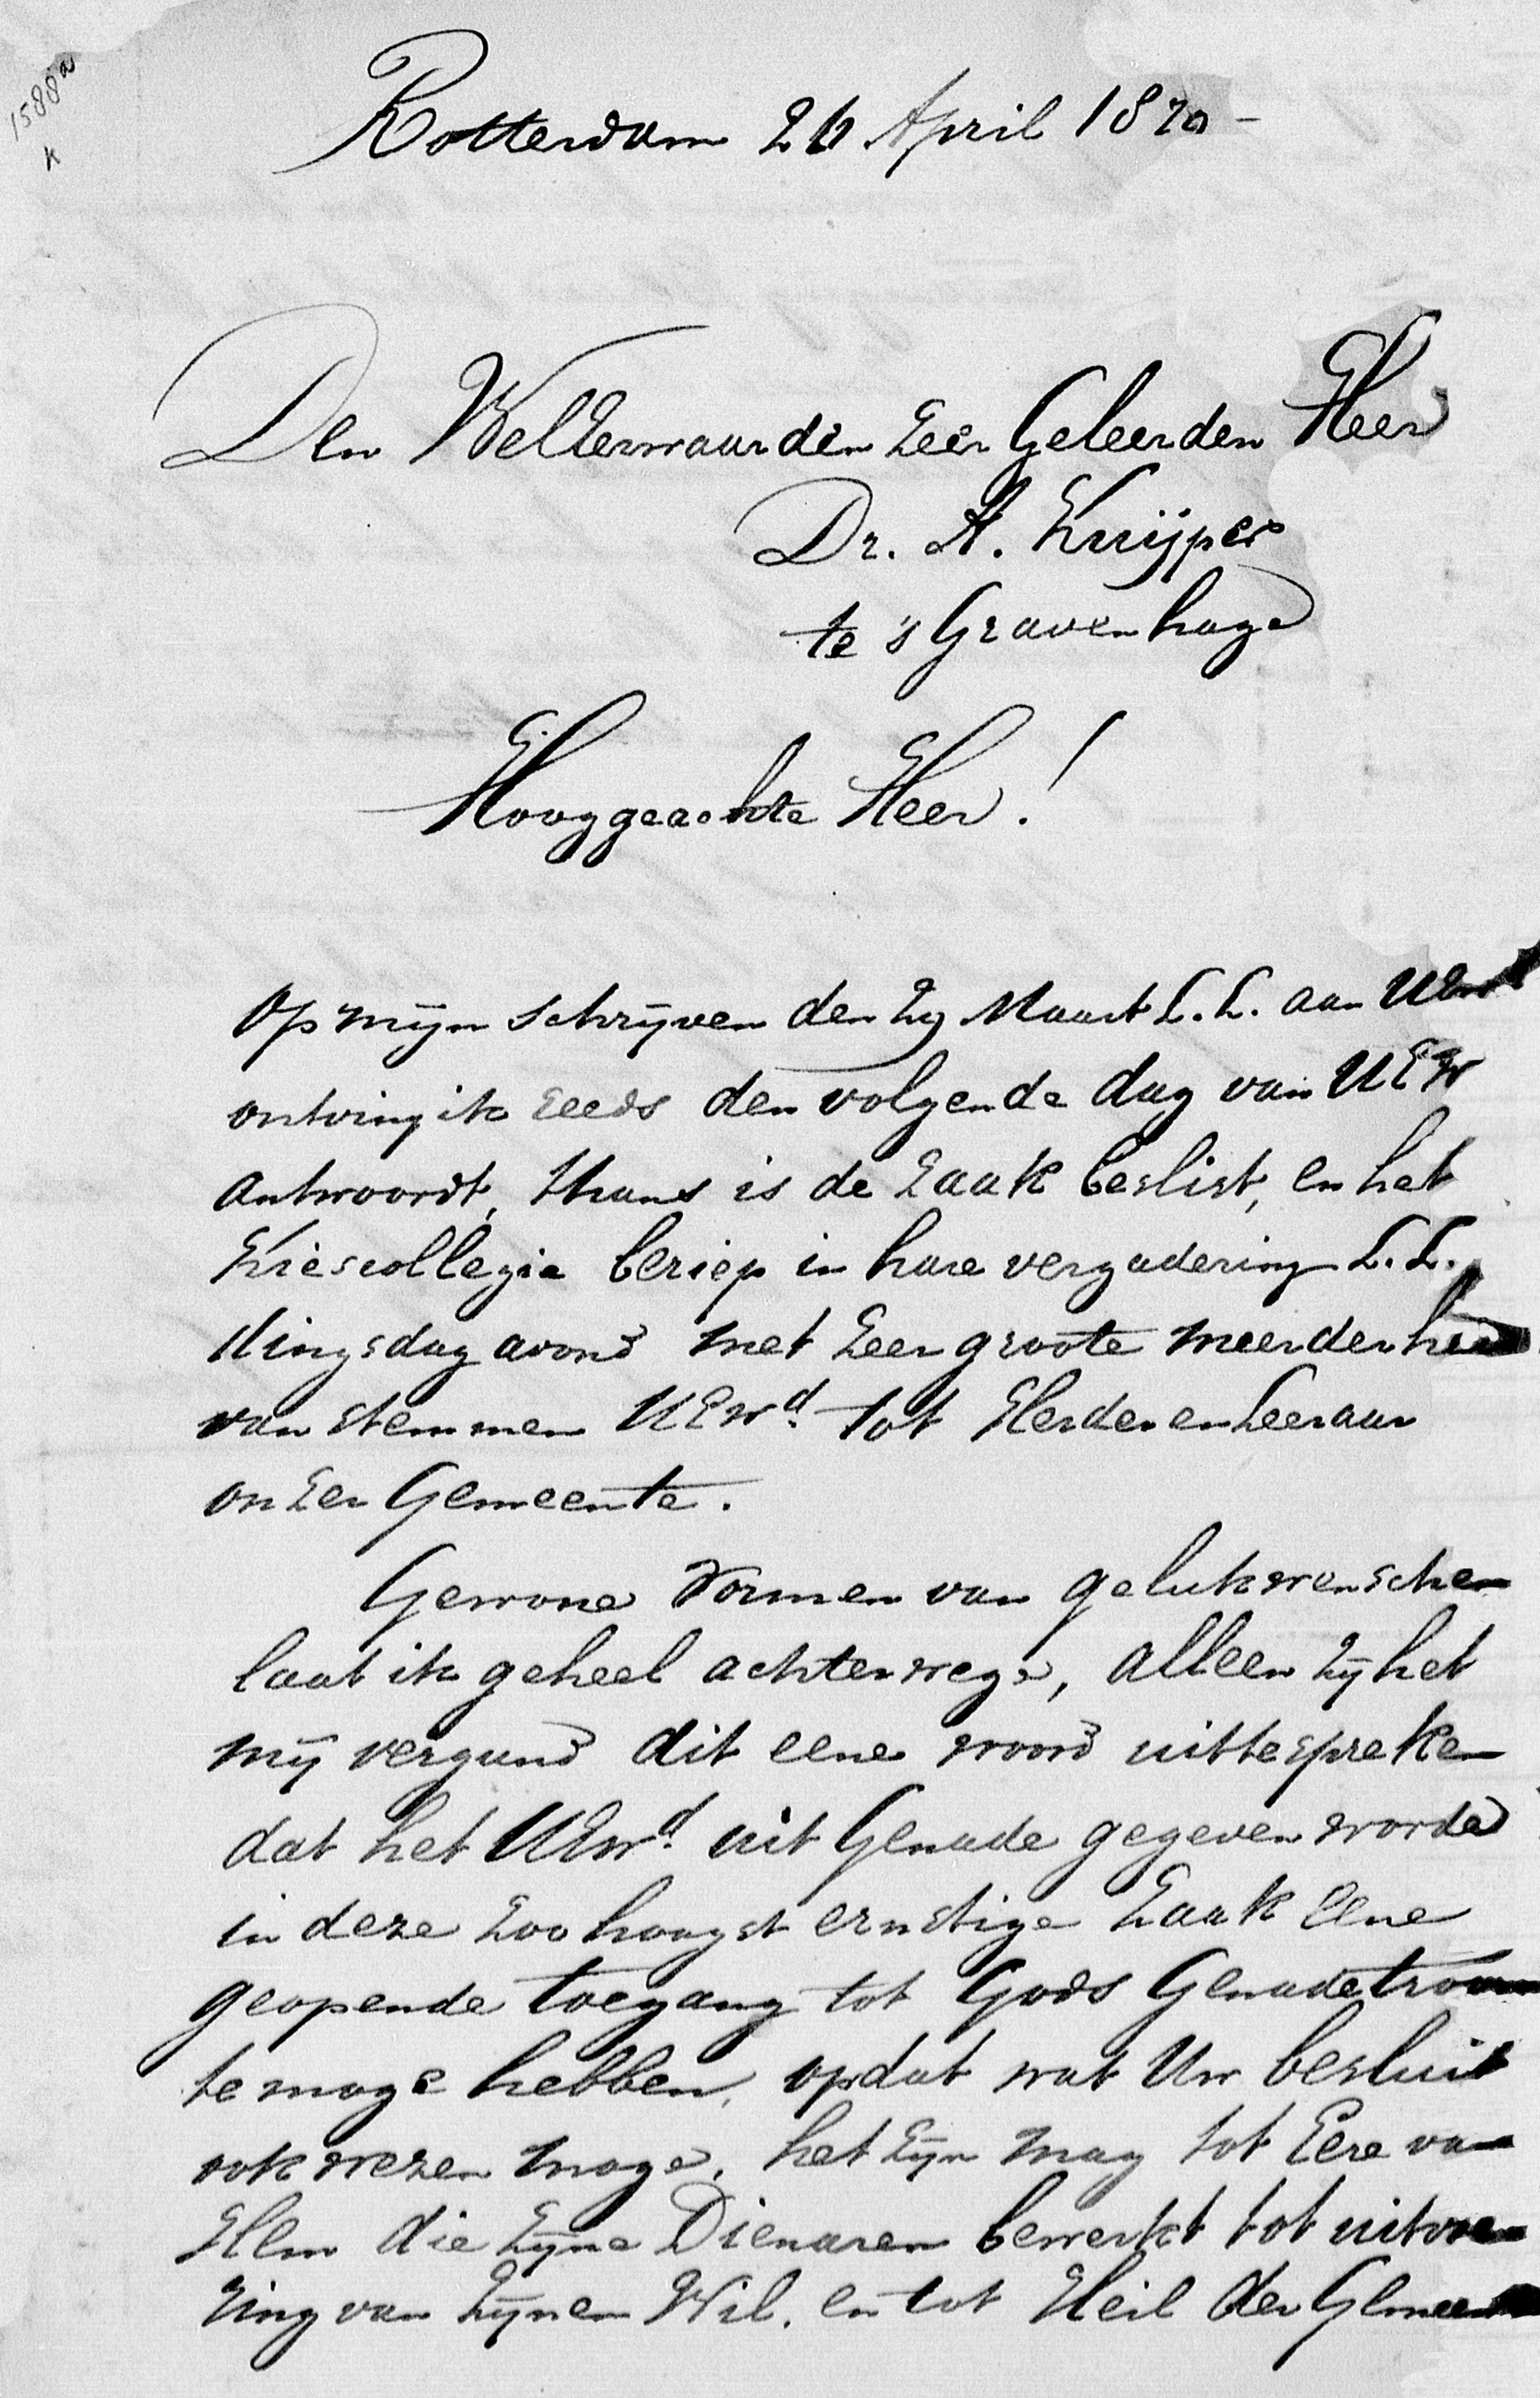 1588a
K
Rotterdam 26 April 1870-
Den WelEerwaarden Zeer Geleerden Heer
Dr. A. Kuijper
te 's Gravenhage
Hooggeachte Heer!
Op mijn schrijven den 29 Maart L.L. aan UEw
ontving ik reeds den volgende dag van UEW
antwoordt, thans is de zaak beslist, en het
Kiescollegie beriep in hare vergadering L.L.
Dingsdag avond met zeer groote meerderheid
van stemmen UEwd. tot Herder en Leeraar
onzer Gemeente.
Gewone vormen van gelukwenschen
laat ik geheel achterwege, alleen zij het
mij vergund dit eene woord uittespreken
dat het UEwd. uit Genade gegeven worde
in deze zoo hoogst ernstige zaak eene
geopende toegang tot Gods Genadetroon
te moge hebben, opdat wat Uw besluit
ook wezen moge, het zijn mag tot Eere van
Hem die zijne Dienaren bewerkt tot uitvoe
ring van zijnen Wil, en tot Heil der Gemeen